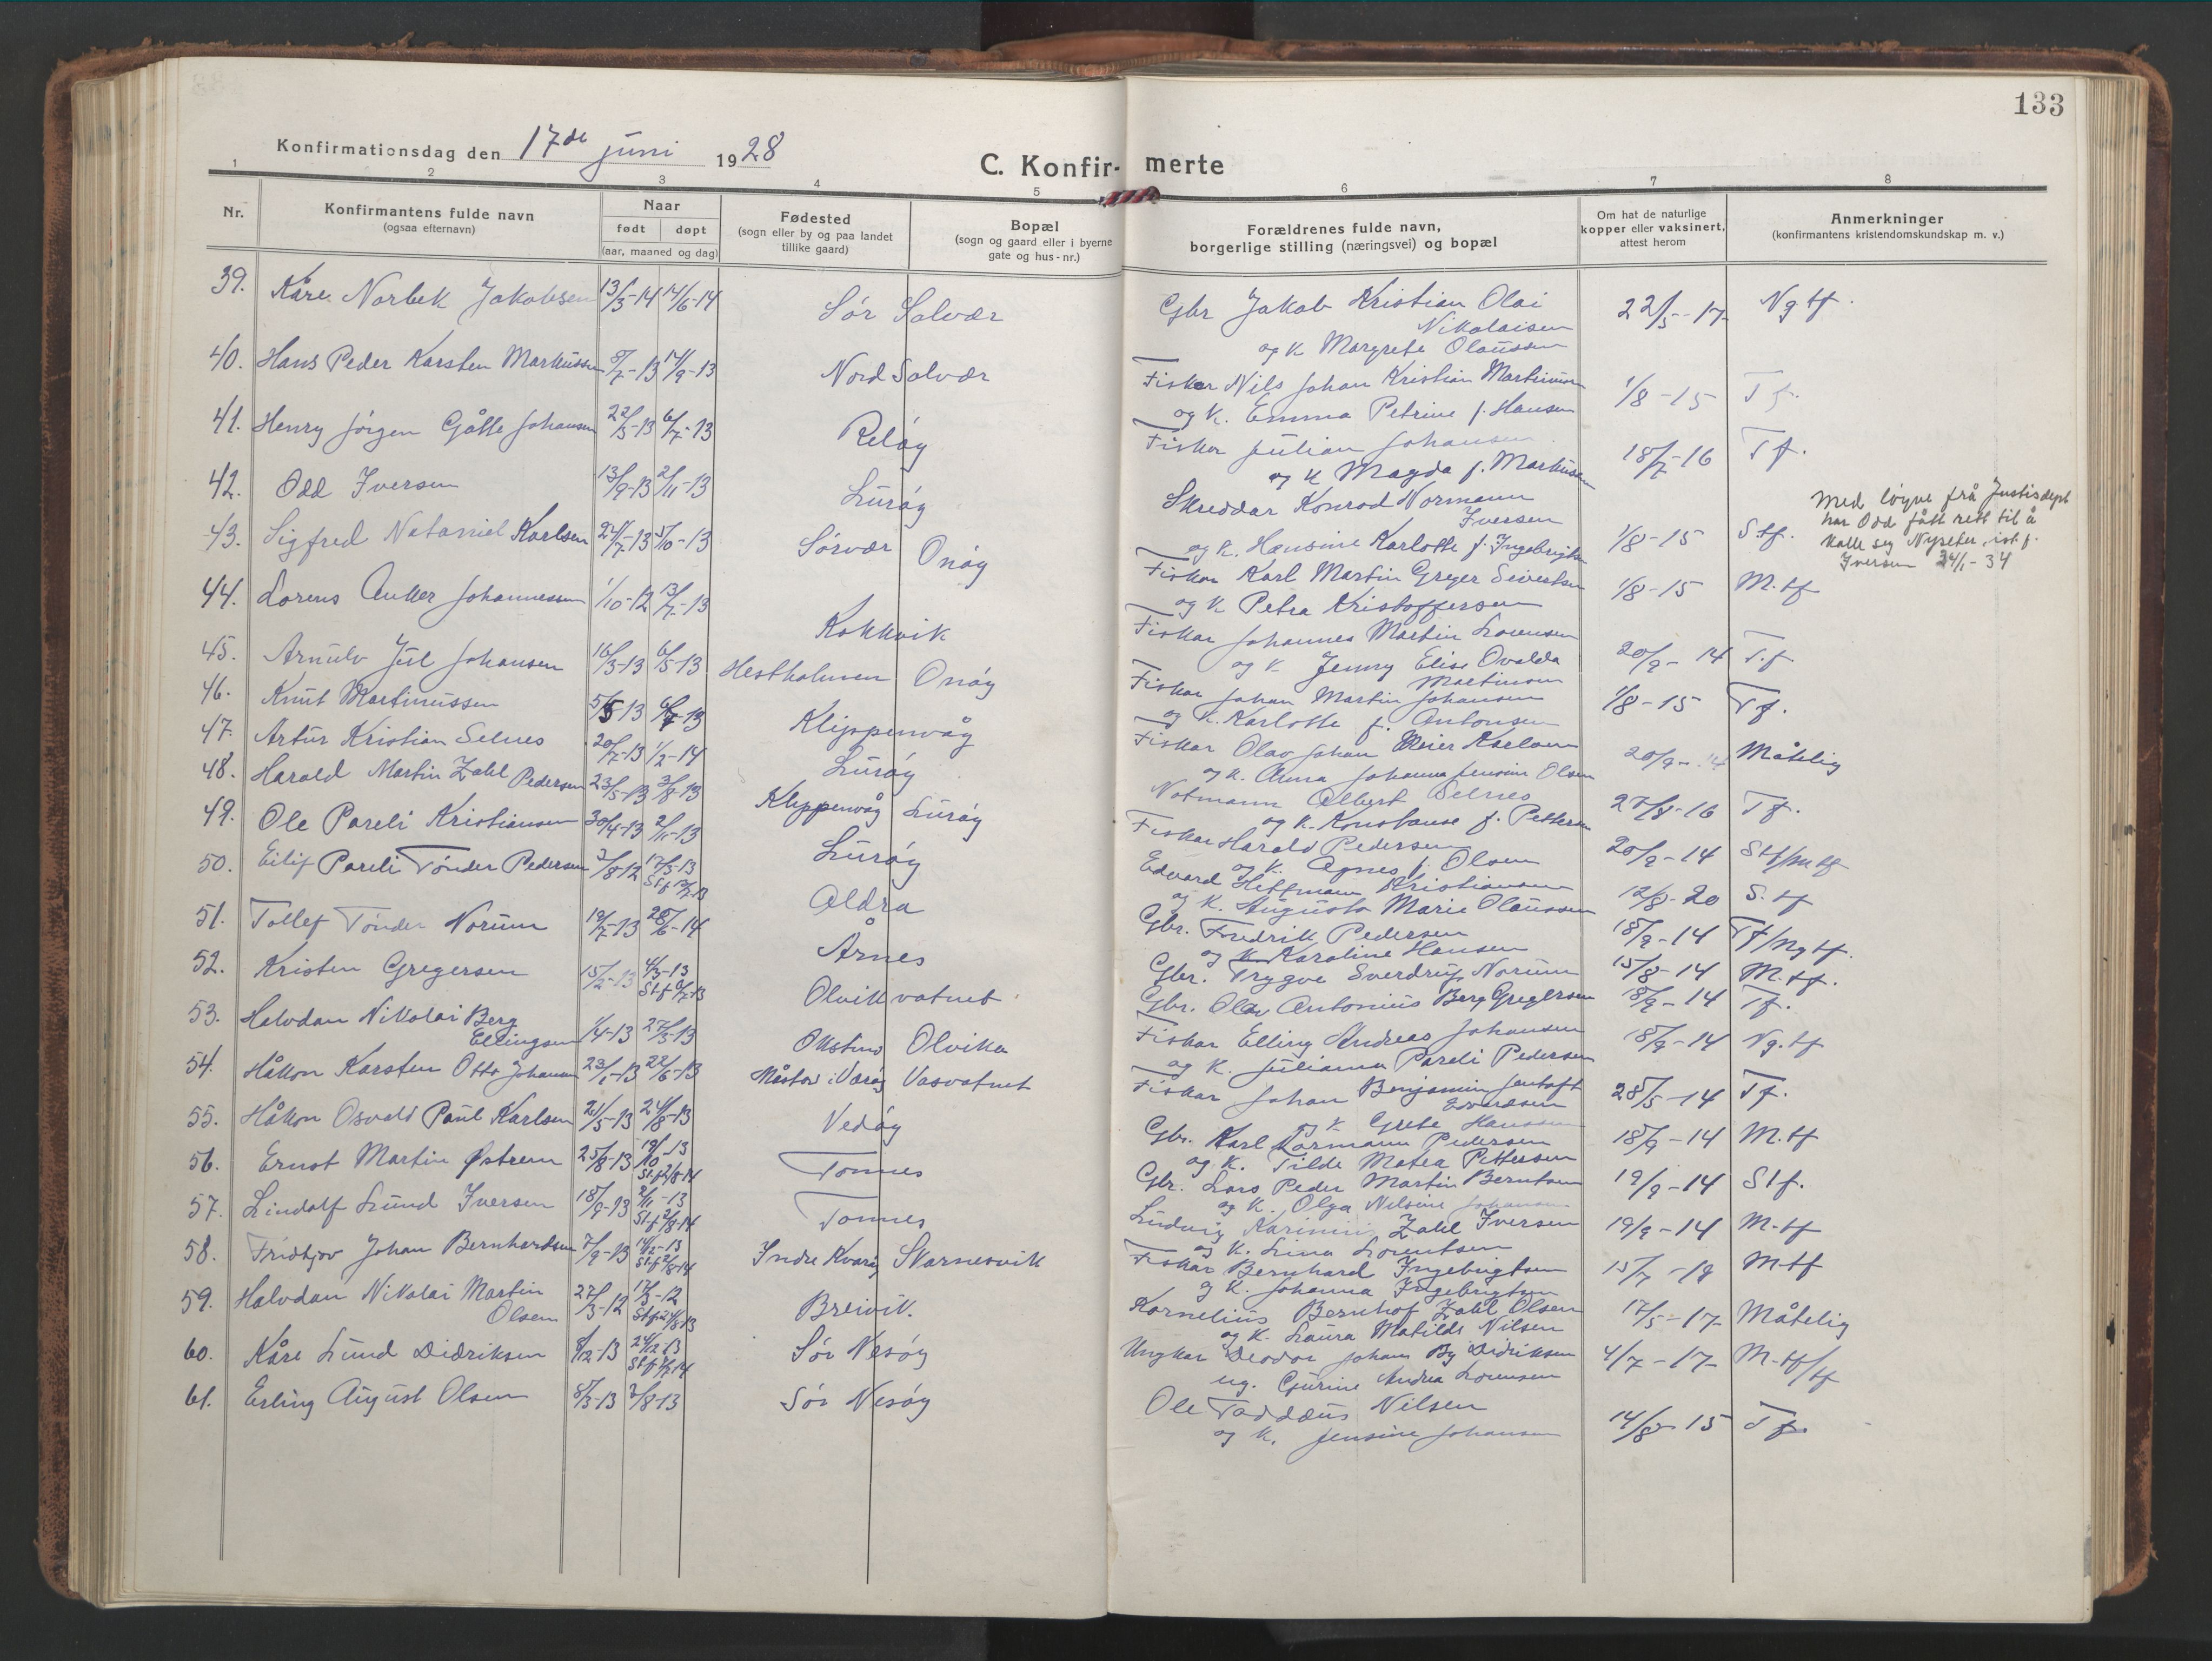 133
Konfirmationsdag den 17de juni 1928
C. Konfir- merte
1 2 3 4 5 6 7 8
Nr.
Konfirmantens fulde navn
(ogsaa efternavn)
Naar
født døpt
(aar, maaned og dag)
Fødested
(sogn eller by og paa landet
tillike gaard)
Bopæl
(sogn og gaard eller i byerne
gate og hus-nr.)
Forældrenes fulde navn,
borgerlige stilling (næringsvei) og bopæl
Om hat de naturlige
kopper eller vaksinert,
attest herom
Anmerkninger
(konfirmantens kristendomskundskap m. v.)
39. Kåre Norbek Jakobsen 13/3-14 14/6-14 Sør Solvær Gbr Jakob Kristian Olai 22/5-17 Ng tf.
Nikolaisen
og K Margrete Olaussen
40. Hans Peder Karsten Markussen 5/7-13 14/9-13 Nord Solvær Fisker Nils Johan Kristian Martinussen 1/8-15 Tf.
og K. Emma Petrine f. Hansen
41. Henry Jørgen Gåtte Johansen 22/5-13 6/7-13 Reløy Fisker Julian Johansen 18/7-16 Tf.
og K Magda f. Markussen
42. Odd Iversen 13/9-13 2/11-13 Lurøy Skreddar Konrad Normann 1/8-15 S tf.
Iversen
og K. Hansine Karlotte f. Ingebrigtsen
Med løyve frå Justisdept
har Odd fått rett til å
kalle seg Nyseter, ist.f.
Iversen 24/1-34
43. Sigfred Nataniel Karlsen 24/7-13 5/10-13 Sørvær Onøy Fiskar Karl Martin Greger Sivertsen 1/8-15 M.tf
og K Petra Kristoffersen
44. Lorens Anker Johannessen 1/10-12 13/7-13 Kokkvik Fiskar Johannes Martin Lorensen 20/9-14 T.f
og K Jenny Elise Ovalda
Martinsen
45. Arnulv Jul Johansen 16/3-13 6/5-13 Hestholmen Onøy Fiskar Johan Martin Johansen 1/8-15 Tf.
og K. Karlotte f. Antonsen
46. Knut Martinussen 5/5-13 6/7-13 Klippenvåg Fiskar Olav Johan Meier Karlsen 20/9-14 Måtelig
og K. Anna Johanna Jensine Olsen
47. Artur Kristian Selnes 20/7-13 1/2-14 Lurøy Notmann Albert Selnes 27/8-16 Tf.
og K. Konstanse f. Pettersen
48. Harald Martin Zahl Pedersen 23/5-13 3/8-13 Klippenvåg Lurøy Fiskar Harald Pedersen 20/9-14 Stf/mtf
og K. Agnes f. Olsen
49. Ole Pareli Kristiansen 30/4-13 2/11-13 Lurøy Edvard Hoffmann Kristiansen 12/8-20 S.tf
og K. Augusta Marie Olaussen
50. Eilif Pareli Tønder Pedersen 3/8-12 17/3-13 Aldra Gbr. Fredrik Pedersen 18/9-14 Tf/ngtf.
og K Karoline Hansen
51. Tollef Tønder Norum 19/7-13 28/6-14 Årnes Gbr. Trygve Sverdrup Norum 15/8-14 M.tf.
52. Kristen Gregersen 15/2-13 4/3-13 Olvikvatnet Gbr. Olav Antonius Berg Gregersen 18/9-14 Tf.
53. Halvdan Nikolai Berg
Ellingsen 1/4-13 27/3-13 Olvika Fiskar Elling Andreas Johansen 18/9-14 Ng.tf
og K. Julianna Pareli Pedersen
54. Håkon Karsten Otto Johansen 23/1-13 22/6-13 Måstad i Værøy Vasvatnet Fiskar Johan Benjamin Jentoft 28/5-14 Tf.
Evardsen
og K Grete Hanssen
55. Håkon Osvald Paul Karlsen 21/5-13 24/8-13 Vedøy Gbr. Karl Normann Pedersen 18/9-14 M.tf
og K. Tilde Matea Pettersen
56. Ernst Martin Østrem 25/8-13 19/10-13 Tonnes Gbr. Lars Peder Martin Berntsen 19/9-14 Stf.
St.f 2/8-14 og K. Olga Nilsine Johansen
57. Lindolf Lund Iversen 18/9-13 2/11-13 Tonnes Ludvig Zahl Iversen 19/9-14 M-tf
St.f 2/8-14 og K. Lina Lorentsen
58. Fridtjov Johan Bernhardsen 7/9-13 14/12-13 Indre Kvarøy Skarnesvik Fiskar Bernhard Ingebrigtsen 15/7-18 Mtf
St.f 2/8-14 og K. Johanna Ingebrigtsen
59. Halvdan Nikolai Martin
Olsen 27/3-12 17/3-12 Breivik. Kornelius Bernhof Zahl Olsen 17/5-17 Måtelig
og K. Laura Matilde Nilsen
60. Kåre Lund Didriksen 8/12-13 24/12-13 Sør Nesøy Ungkar Deodor Johan By Didriksen 4/7-17 M-tf/tf
ug. Gjurine Andrea Lorensen
61. Erling August Olsen 8/3-13 3/8-13 Sør Nesøy Ole Taddæus Nilsen 14/8-15 Tf.
og K. Jensine Johansen